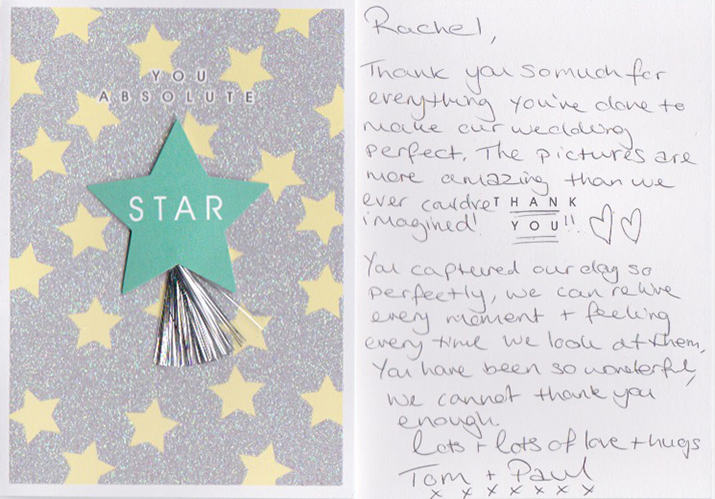 YOU
ABSOLUTE
STAR
Rachel,
Thank you so much for
everything you've done to
make our wedding
perfect. The pictures are
more amazing than we
ever could've
imagined!
THANK
YOU!!
You captured our day so
perfectly, we can relive
every moment + feeling
every time we look at them,
You have been so wonderful,
we cannot thank you
enough.
lots + lots of love + hugs
Tom + Paul
x x x x x x x